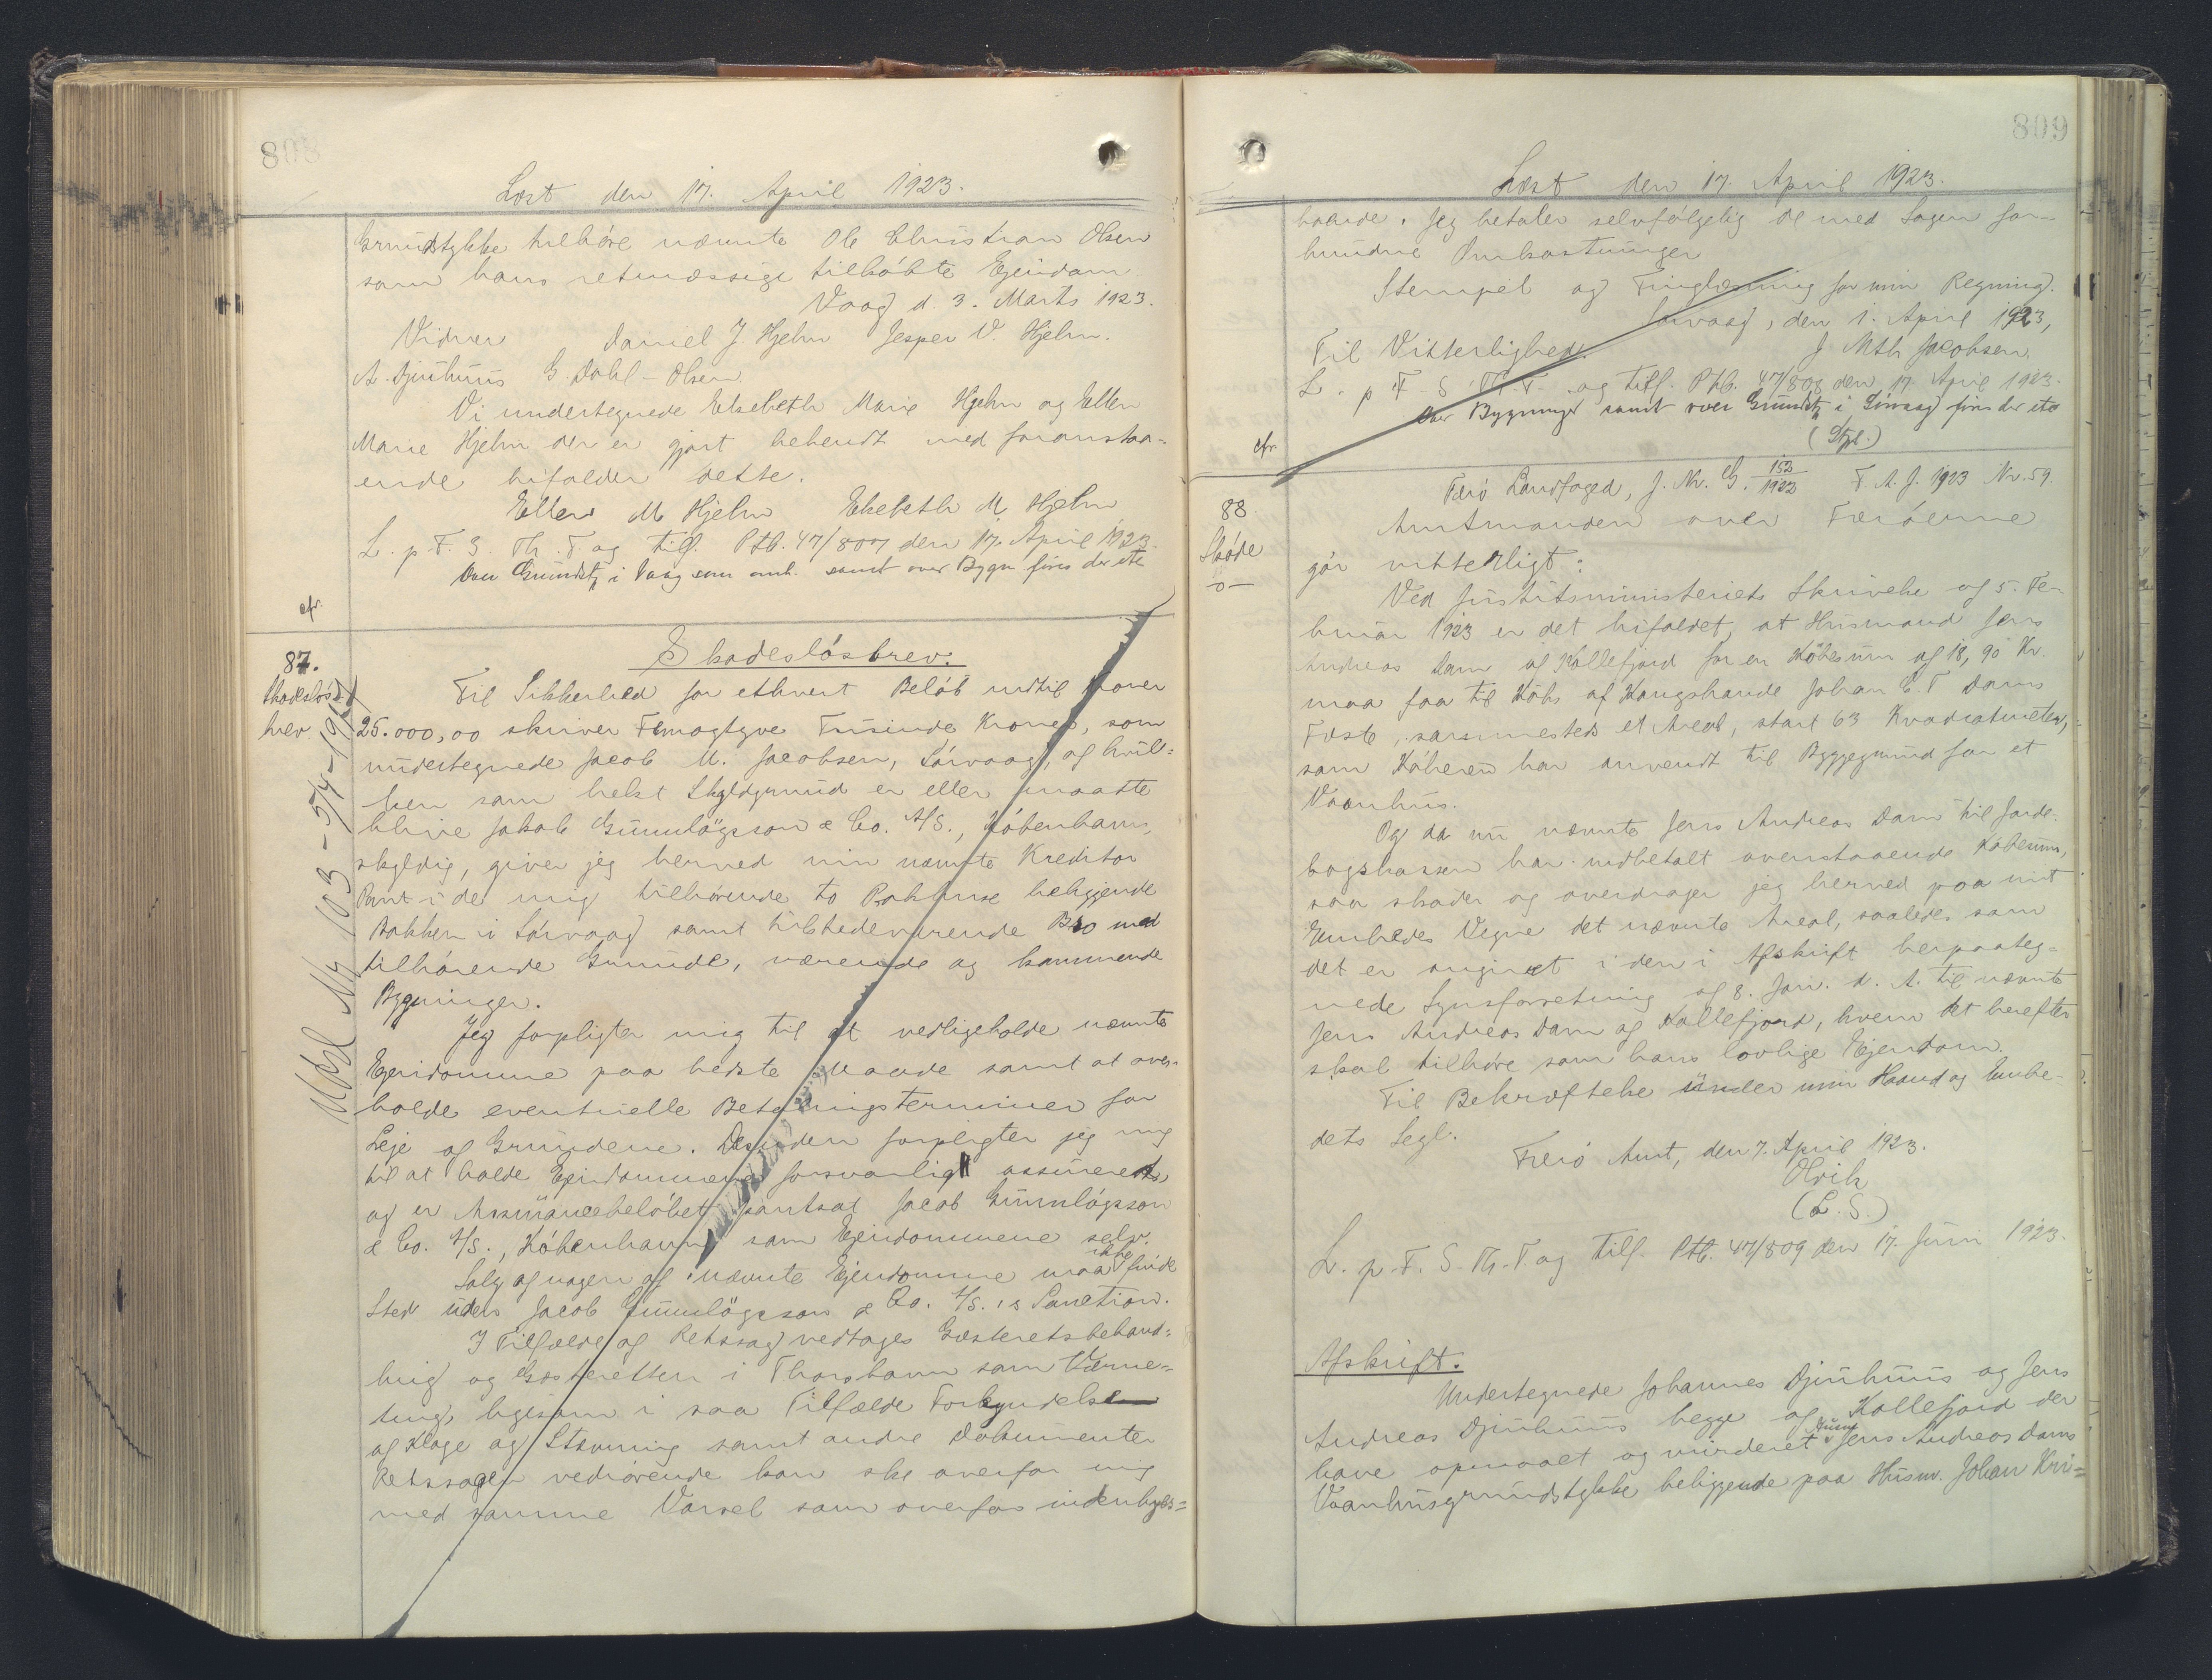 808
Læst den 17. April 1923.
Grundstykke tilhøre nævnte Ole Christian Olsen
som hans retmæssige tilkøbte Ejendom
Vaag d. 3. Marts 1923.
Vidner Daniel J. Hjelm Jesper V. Hjelm.
A. Djurhuus G. Dahl-Olsen
Vi undertegnede Elsebeth Marie Hjelm og Ellen
Marie Hjelm der er gjort bekendt med foranstaa-
ende bifalder dette.
Ellen M Hjelm Elsebeth M Hjelm
L. p. F. S. Th. T og tilf. Ptb. 47/807 den 17. April 1923.
Over Grundstk i Vaag som omh. samt over Bygn fires der ete
cfr.
87.
Skadesløs
brev
Skadesløsbrev.
Til Sikkerhed for ethvert Beløb indtil Kroner
25.000,00 skriver Femogtyve Tusinde Kroner, som
undertegnede Jacob M. Jacobsen, Sørvaag, af hvil=
ken som helst Skyldgrund er eller maatte
blive Jakob Gunnløgsson & Co. A/S., København,
skyldig, giver jeg herved min nævnte Kreditor
Pant i de mig tilhørende to Pakhuse beliggende
Bakken i Sørvaag samt tilstedeværende Bro med
tilhørende Grunde, værende og kommende
Bygninger.
Jeg forpligter mig til at vedligeholde nævnte
Ejendomme paa bedste Maade samt at over-
holde eventuelle Betalingsterminer for
Leje af Grundene. Desuden forpligter jeg mig
til at holde Ejendommene forsvarligt assureret,
og er Assurancebeløbet pantsat Jacob Gunnløgsson
& Co. A/S., København som Ejendommene selv.
Salg af nogen af nævnte Ejendomme maa ikke finde
Sted uden Jacob Gunnløgsson & Co. A/S.'s Sanction.
I Tilfælde af Retssag vedtages Gæsteretsbehand=
ling og Gæsteretten i Thorshavn som Værne=
ting, ligesom i saa Tilfælde Forkyndelse
af Klage og Stævning samt andre Dokumenter
Retssagen vedrørende kan ske overfor mig
med samme Varsel som overfor indenbys=
809
Læst den 17. April 1923.
boende. Jeg betaler selvfølgelig de med Sagen for-
bundne Omkostninger
Stempel og Tinglæsning for min Regning.
Sørvaag, den 1. April 1923,
Til Vitterlighed. J Mth Jacobsen
L. p F. S Th. T. og tilf. Ptb. 47/808 den 17 April 1923.
Over Bygninger samt over Grundstk i Sørvaag fires der ete
(Stpl.)
cfr.
88
Skøde
-o-
Færø Landfoged, J. Nr. G. 152/1922 F. A. J. 1923 Nr. 59.
Amtmanden over Færøerne
gør vitterligt:
Ved Justitsministeriets Skrivelse af 5. Fe-
bruar 1923 er det bifaldet, at Husmand Jens
Andreas Dam af Kollefjord for en Købesum af 18,90 Kr.
maa faa til Købs af Kongsbonde Johan C. T Dams
Fæste, sammesteds et Areal, stort 63 Kvadratmeter,
som Køberen har anvendt til Byggegrund for et
Vaanhus.
Og da nu nævnte Jens Andreas Dam til Jorde-
bogskassen har indbetalt ovenstaaende Købesum,
saa skøder og overdrager jeg herved paa mit
Embedes Vegne det nævnte Areal, saaledes som
det er angivet i den i Afskrift herpaateg=
nede Synsforretning af 8. Jan. d. A. til nævnte
Jens Andreas Dam af Kollefjord, hvem det herefter
skal tilhøre som hans lovlige Ejendom.
Til Bekræftelse under min Haand og Embe-
dets Segl.
Færø Amt, den 7. April 1923.
Olrik
(L. S.)
L. p. F. S. Th. T. og tilf. Ptb. 47/809 den 17. Juni 1923.
Afskrift.
Undertegnede Johannes Djurhuus og Jens
Andreas Djurhuus begge af Kollefjord der
have opmaalt og vurderet Jens Andreas Dams
Vaanhusgrundstykke beliggende paa Husm. Johan Kri=